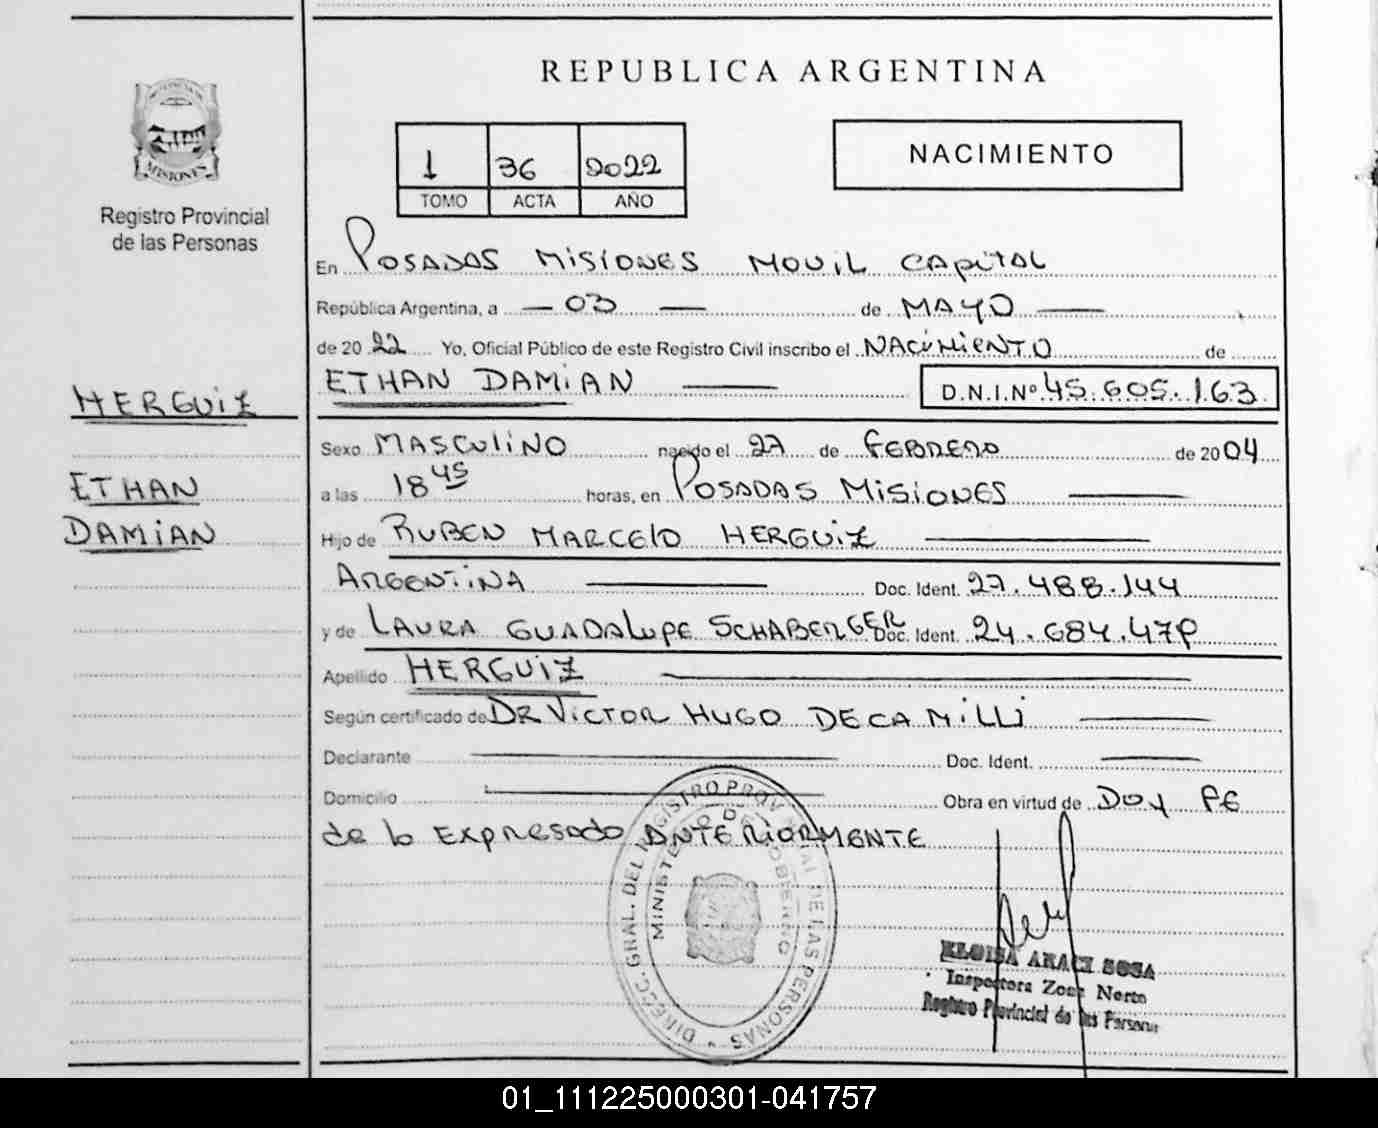 REPUBLICA ARGENTINA
MISIONES
Registro Provincial
de las Personas
1 36 2022
TOMO ACTA AÑO
NACIMIENTO
En POSADAS MISIONES MOVIL CAPITAL
República Argentina, a 03 de MAYO
de 20 22 Yo, Oficial Público de este Registro Civil inscribo el NACIMIENTO de
ETHAN DAMIAN D.N.I.Nº 45.605.163
HERGUIZ
ETHAN
DAMIAN
Sexo MASCULINO nacido el 27 de FEBRERO de 2004
a las 18 45 horas, en POSADAS MISIONES
Hijo de RUBEN MARCELO HERGUIZ
ARGENTINA Doc. Ident. 27.488.144
y de LAURA GUADALUPE SCHABERGER Doc. Ident. 24.684.479
Apellido HERGUIZ
Según certificado de DR VICTOR HUGO DECAMILLI
Declarante Doc. Ident.
Domicilio Obra en virtud de DOY FE
de lo EXPRESADO ANTERIORMENTE
DIREC. GRAL. DEL REGISTRO PROVINCIAL DE LAS PERSONAS
MINISTERIO DE GOBIERNO
ELOISA ARACI SOSA
Inspectora Zona Norte
Registro Provincial de las Personas
01_111225000301-041757